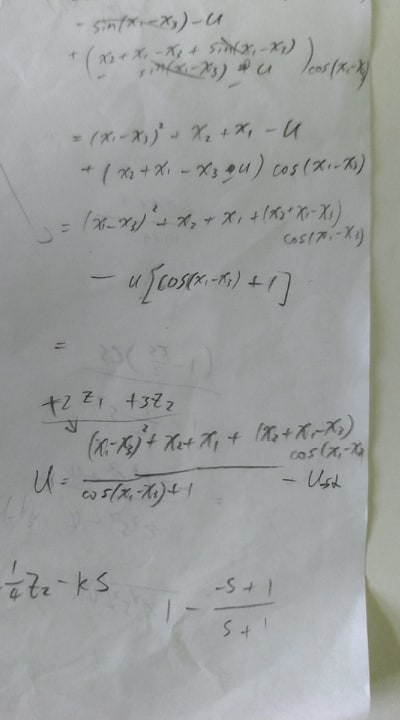 - sin(x₁-x₃) - u
+ (x₂+x₁-x₃ + sin(x₁-x₃)
- sin(x₁-x₃) u ) cos(x₁-x₃)
= (x₁-x₃)² + x₂ + x₁ - u
+ (x₂+x₁-x₃ u) cos(x₁-x₃)
= (x₁-x₃)² + x₂ + x₁ + (x₂+x₁-x₃)
cos(x₁-x₃)
- u[cos(x₁-x₃)+1]
=
+2z₁ +3z₂
(x₁-x₃)² + x₂+x₁ + (x₂+x₁-x₂)
cos(x₁-x₂
u = ―――――
cos(x₁-x₃)+1
1/4 z₂ - ks
1 - (-s+1)/(s+1)